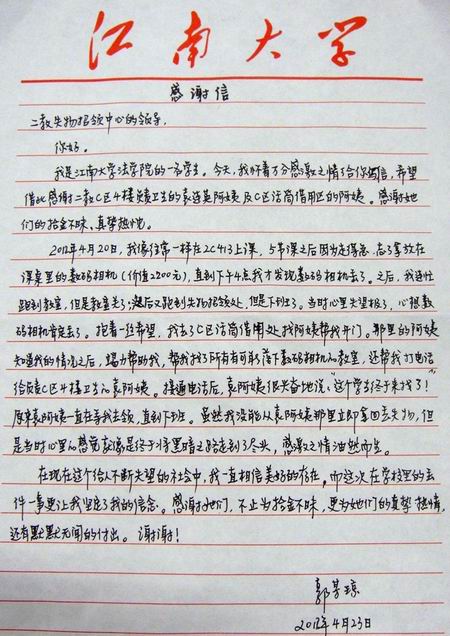 江南大学
感谢信
二教失物招领中心的领导,
你好。
我是江南大学法学院的一名学生。今天,我怀着万分感激之情了给你写信,希望
借此感谢二教C区4楼负责卫生的袁 阿姨及C区话筒借用区的阿姨。感谢她
们的拾金不昧、真挚热忱。
2012年4月20日,我像往常一样在2C413上课,5节课之后因为走得急,忘了拿放在
课桌里的数码相机(价值2200元),直到下午4点我才发现数码相机丢了。之后,我连忙
跑到教室,但是教室关了;然后又跑到失物招领处,但是下班了。当时心里失望极了,心想数
码相机肯定丢了。抱着一丝希望,我去了C区话筒借用处找阿姨帮我开门。那里的阿姨
知道我的情况之后,竭力帮助我,帮我找了所有有可能落下数码相机的教室,还帮我打电话
给负责C区4楼卫生的袁阿姨。接通电话后,袁阿姨很兴奋地说:“这个学生终于来找了!”
原来袁阿姨一直在等我去领,直到下班。虽然我没能从袁阿姨那里立即拿回丢失物,但
是当时心里的感觉就像是终于将黑暗之路走到了尽头,感激之情油然而生。
在现在这个给人不断失望的社会中,我一直相信美好的存在,而这次在学校里的丢
件一事更让我坚定了我的信念。感谢她们,不止为拾金不昧,更为她们的真挚热情,
还有默默无闻的付出。谢谢!
郭 琼
2012年4月23日